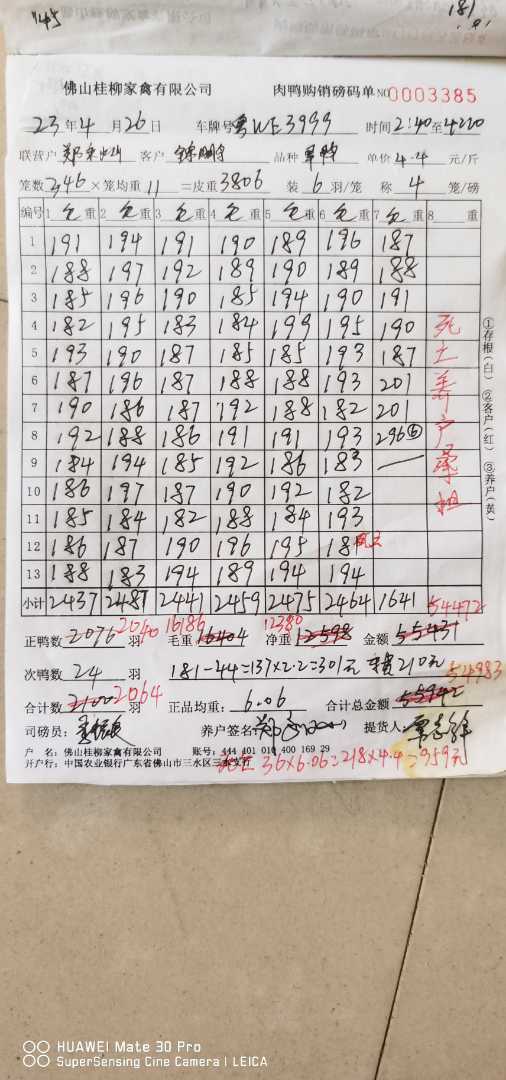 745
181
佛山桂柳家禽有限公司 肉鸭购销磅码单 NO 0003385
23年4月26日 车牌号粤WE3999 时间2:40至4:20
联营户 郑 客户 品种 单价4.4元/斤
笼数346×笼均重11=皮重3806 装6羽/笼 称4笼/磅
编号 1毛重 2毛重 3毛重 4毛重 5毛重 6毛重 7毛重 8 重
1 191 194 191 190 189 196 187
2 188 197 192 189 190 189 188
3 185 196 190 185 194 190 191
4 182 195 183 184 199 195 190 死
5 193 190 187 185 185 193 187 土
6 187 196 187 188 188 193 201 养
7 190 186 187 192 188 182 201 户
8 192 188 186 191 191 193 296⑥ 承
9 184 194 185 192 186 183 — 担
10 186 197 187 190 192 182
11 185 184 182 188 184 193
12 186 187 190 196 195 184
13 188 183 194 189 194 194
小计 2437 2487 2441 2459 2475 2464 1641 54472
正鸭数2076 2040羽 毛重16404 16186 净重12598 12380 金额55431
次鸭数24羽 181-44=137×2.2=301元 210元 54983
合计数2100 2064羽 正品均重:6.06 合计总金额55942
司磅员: 养户签名: 提货人:
户 名:佛山桂柳家禽有限公司 账号:444 401 010 400 169 29
开户行:中国农业银行广东省佛山市三水区三水支行 36×6.06=218×4.4=959元
①存根(白) ②客户(红) ③养户(黄)
HUAWEI Mate 30 Pro
SuperSensing Cine Camera | LEICA